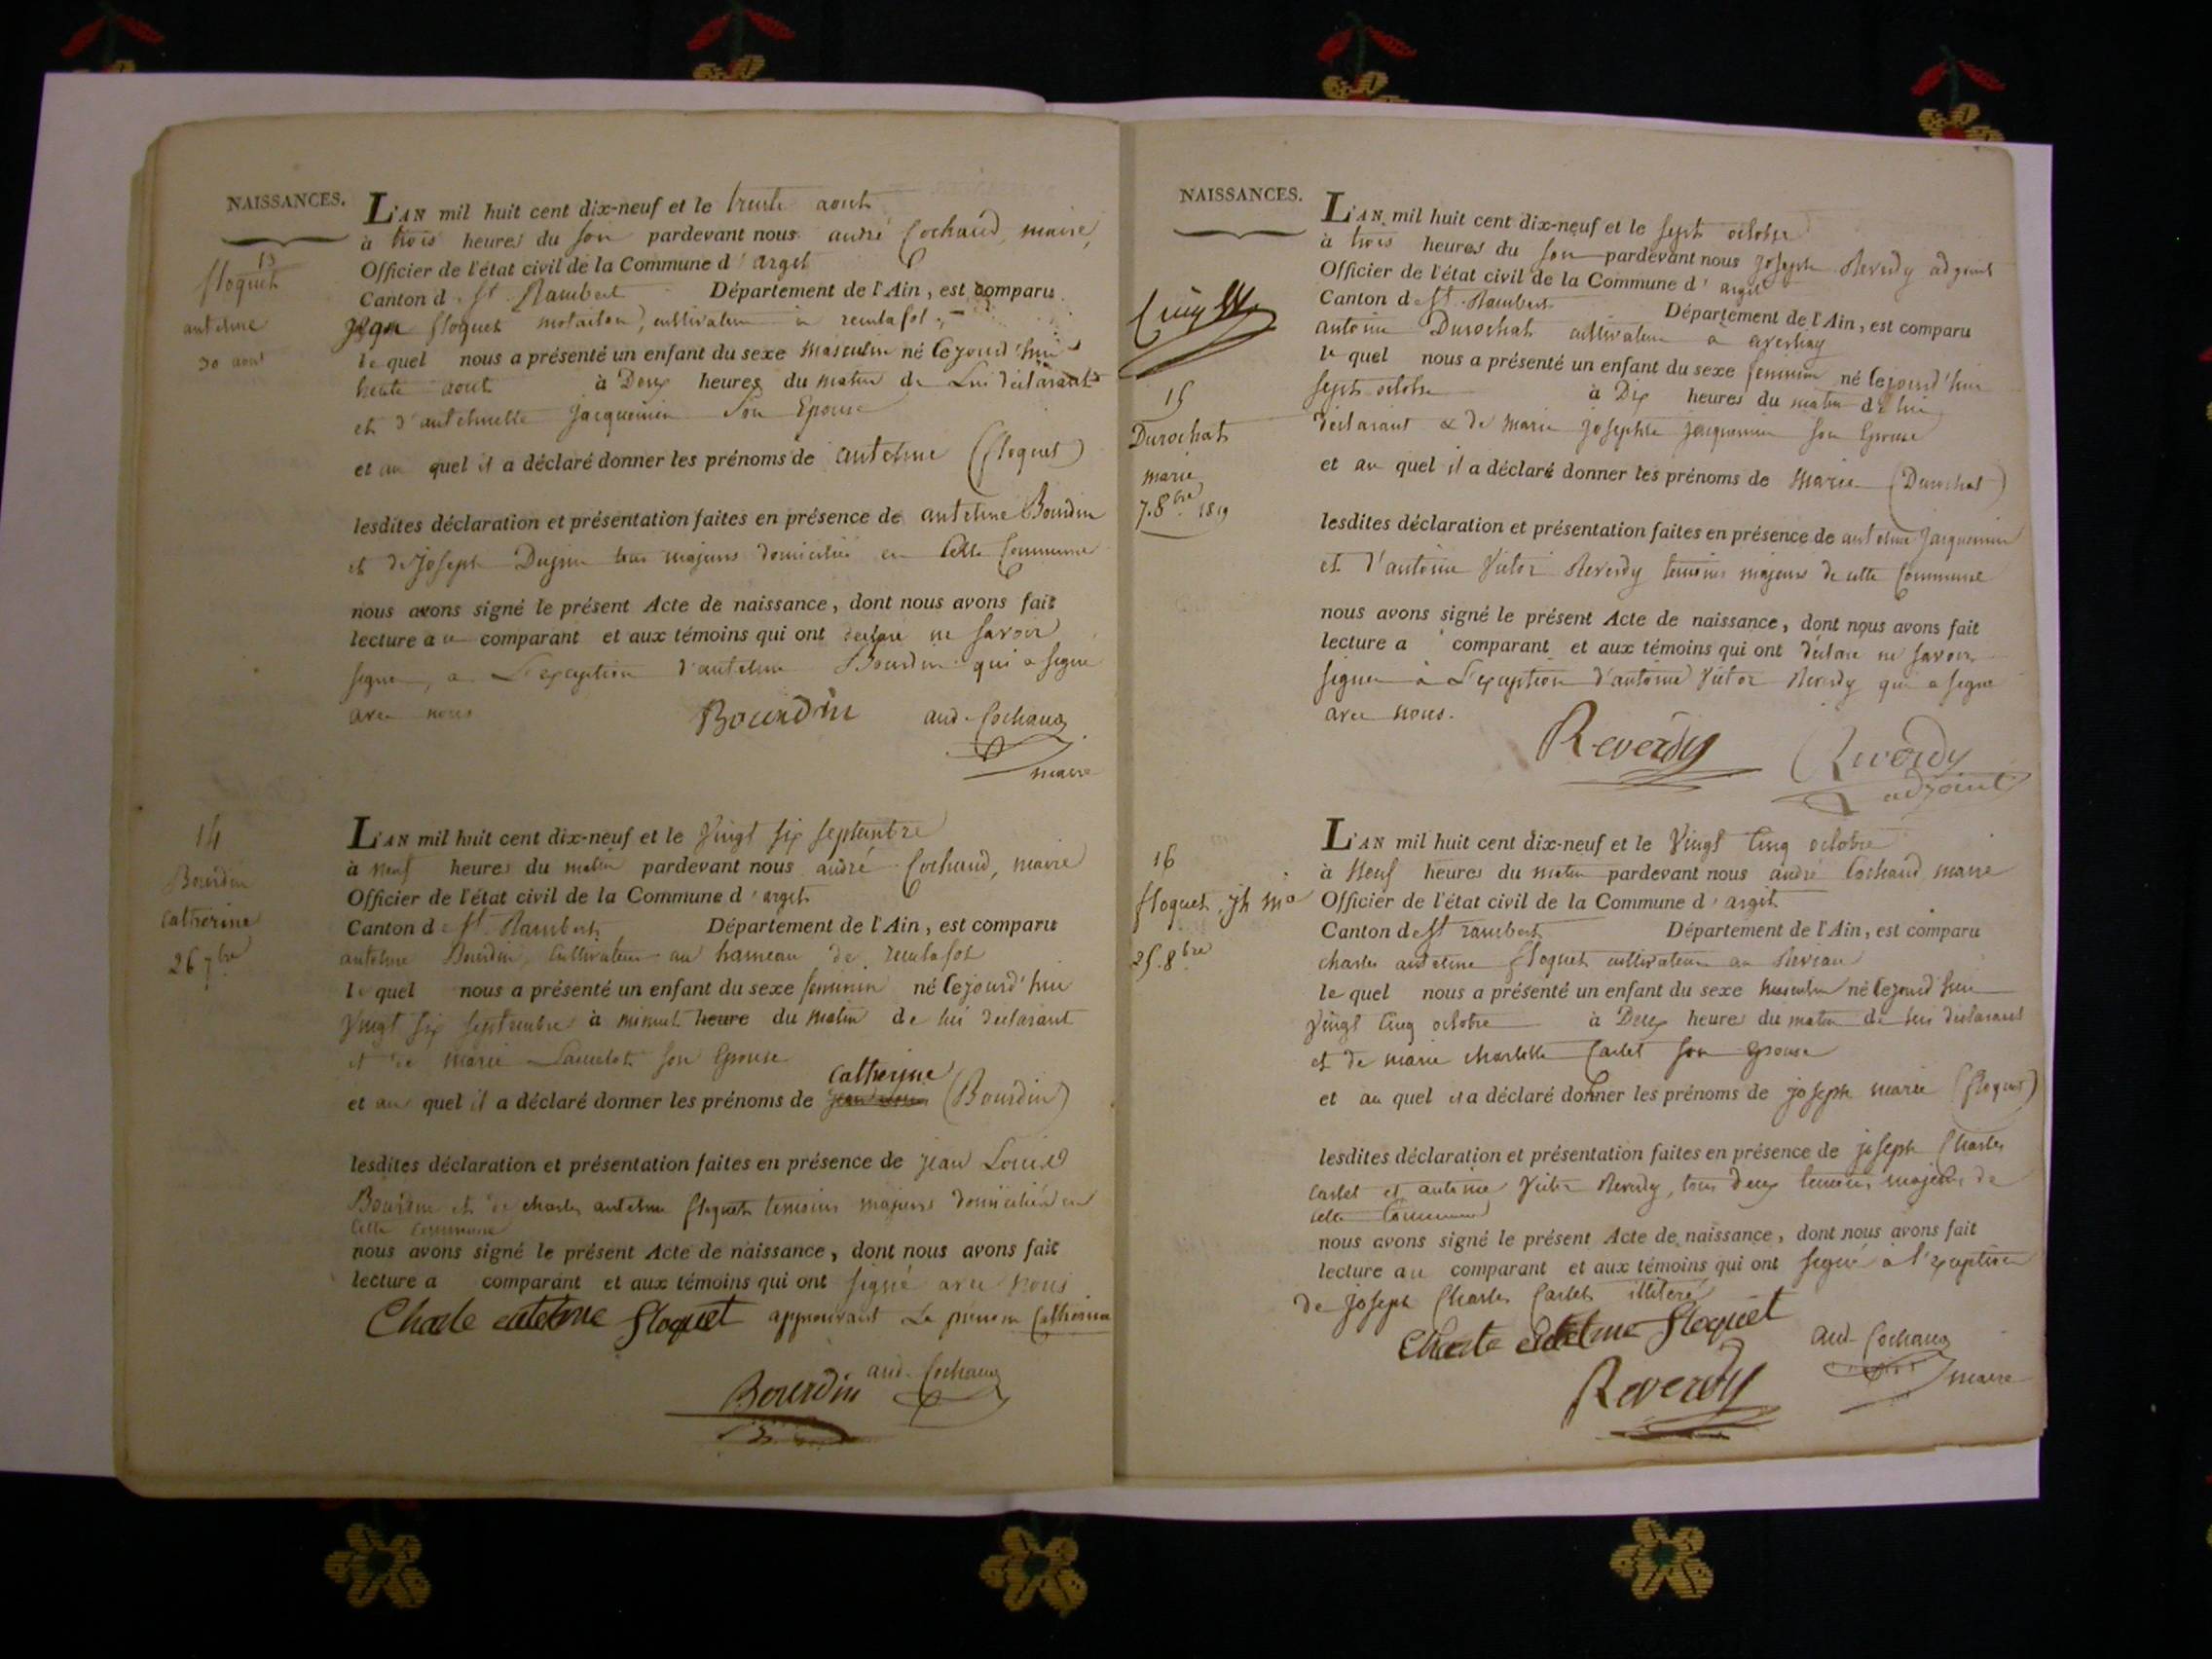 NAISSANCES.
13
floquet
antelme
30 aout
L'AN mil huit cent dix-neuf et le trente aout
à trois heures du soir pardevant nous andré Cochand, maire,
Officier de l'état civil de la Commune d'argit
Canton de St. Rambert Département de l'Ain, est comparu
floquet cultivateur
le quel nous a présenté un enfant du sexe masculin né cejourd'hui
trente aout à Deux heures du matin de Lui déclarant
et d'antelmette jacquemin Son Epouse
et au quel il a déclaré donner les prénoms de antelme (floquet)
lesdites déclaration et présentation faites en présence de antelme Bourdin
et de joseph majeurs domiciliés en Cette Commune
nous avons signé le présent Acte de naissance, dont nous avons fait
lecture au comparant et aux témoins qui ont déclaré ne savoir
signer, a L'exception d'antelme Bourdin qui a signé
avec nous
Bourdin and. Cochand
maire
14
Bourdin
catherine
26 7bre
L'AN mil huit cent dix-neuf et le Vingt six septembre
à neuf heures du matin pardevant nous andré Cochand, maire
Officier de l'état civil de la Commune d'argit
Canton de St. Rambert Département de l'Ain, est comparu
antelme Bourdin, Cultivateur au hameau de
le quel nous a présenté un enfant du sexe feminin né cejourd'hui
Vingt six septembre à minuit heure du matin de lui déclarant
et de marie son Epouse
catherine
et au quel il a déclaré donner les prénoms de (Bourdin)
lesdites déclaration et présentation faites en présence de jean Louis
Bourdin et de charles antelme floquet temoins majeurs domiciliés en
Cette Commune
nous avons signé le présent Acte de naissance, dont nous avons fait
lecture a comparant et aux témoins qui ont signé avec nous
Charle antelme floquet approuvant Le prénom Catherine
Bourdin and. Cochand
NAISSANCES.
15
Durochat
marie
7. 8bre 1819
L'AN mil huit cent dix-neuf et le sept octobre
à trois heures du soir pardevant nous joseph Reverdy adjoint
Officier de l'état civil de la Commune d'argit
Canton de St. Rambert Département de l'Ain, est comparu
antoine Durochat cultivateur a
le quel nous a présenté un enfant du sexe feminin né cejourd'hui
sept octobre à Dix heures du matin de lui
déclarant & de marie josephte jacquemin son Epouse
et au quel il a déclaré donner les prénoms de Marie (Durochat)
lesdites déclaration et présentation faites en présence de antelme jacquemin
et d'antoine Victor Reverdy temoins majeurs de cette Commune
nous avons signé le présent Acte de naissance, dont nous avons fait
lecture a comparant et aux témoins qui ont déclaré ne savoir
signer à L'exception d'antoine Victor Reverdy qui a signé
avec nous.
Reverdy Reverdy
adjoint
16
floquet, jh ma
25. 8bre
L'AN mil huit cent dix-neuf et le Vingt Cinq octobre
à Neuf heures du matin pardevant nous andré Cochand maire
Officier de l'état civil de la Commune d'argit
Canton de St rambert Département de l'Ain, est comparu
charles antelme floquet cultivateur au
le quel nous a présenté un enfant du sexe masculin né cejourd'hui
Vingt Cinq octobre à Deux heures du matin de lui déclarant
et de marie Carlet son Epouse
et au quel il a déclaré donner les prénoms de joseph marie (floquet)
lesdites déclaration et présentation faites en présence de joseph Charles
Carlet et antoine Victor Reverdy, tous deux temoins majeurs de
cette Commune
nous avons signé le présent Acte de naissance, dont nous avons fait
lecture au comparant et aux témoins qui ont signé à l'exception
de joseph Charles Carlet illiteré
Charle antelme floquet and. Cochand
Reverdy maire